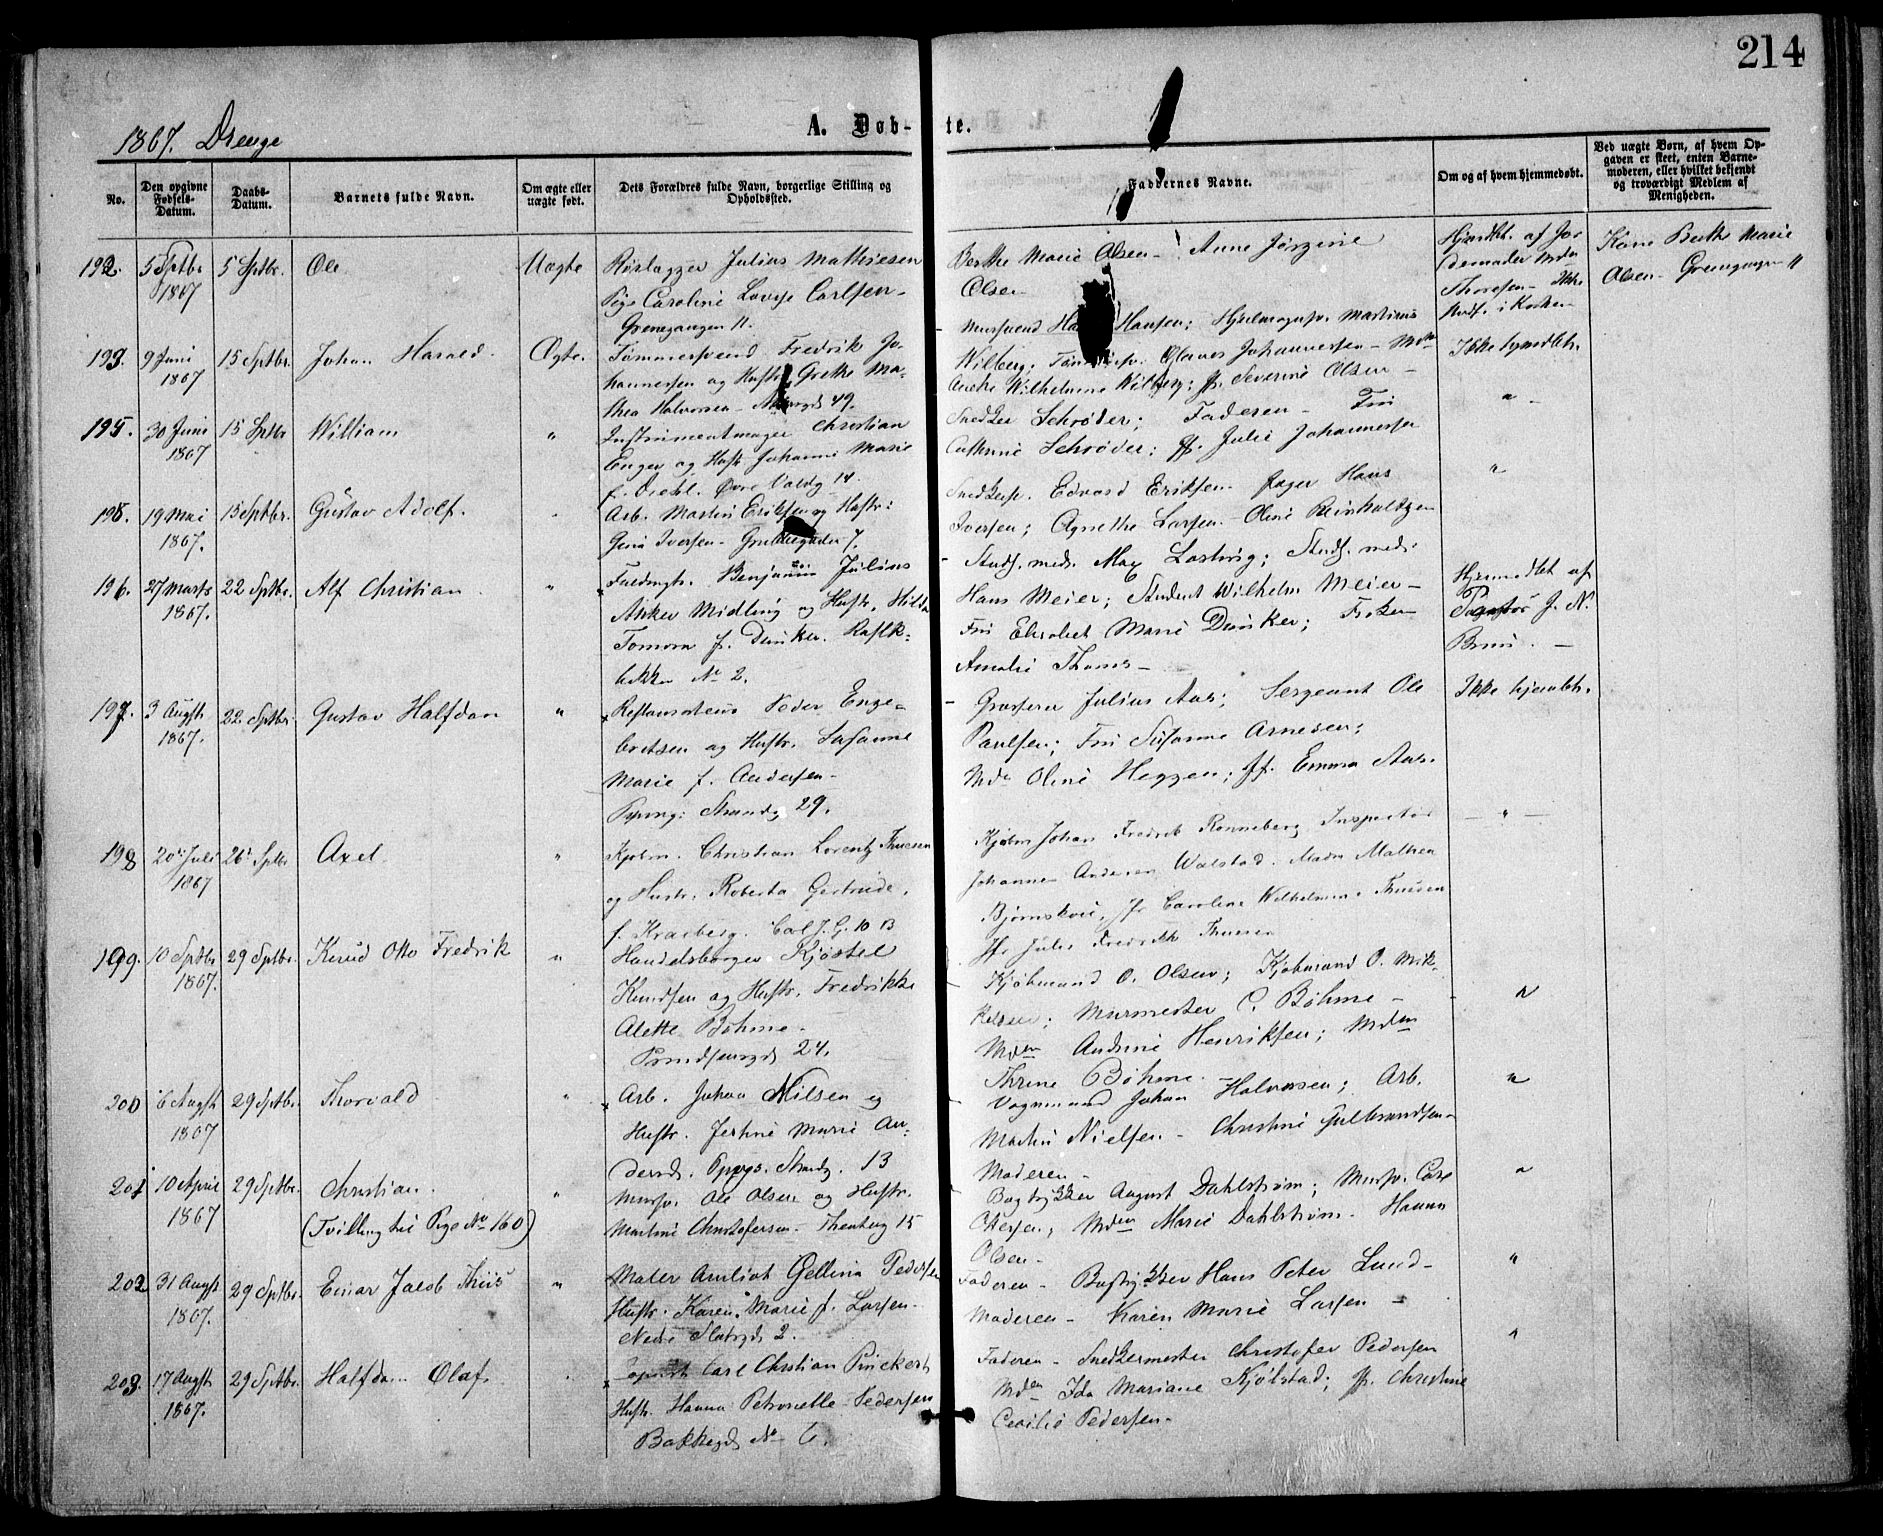 214
1867. Drenge
A. Døb-te.
No.
Den opgivne Fødsels-Datum.
Daabs-Datum.
Barnets fulde Navn.
Om ægte eller uægte født.
Dets Forældres fulde Navn, borgerlige Stilling og Opholdssted.
Faddernes Navne.
Om og af hvem hjemmedøbt.
Ved uægte Børn, af hvem Opgaven er skeet, enten Barnemoderen, eller hvilket bekjendt og troværdigt Medlem af Menigheden.
192. 5 Sptbr 1867 5 Sptbr. Ole Uægte
Rørlægger Julius Mathiesen
Pige Caroline Lovise Carlsen-
Grønnegangen 11.
Berthe Marie Olsen - Anne Jørgine
Olsen
Hjmdbt. af Jordemoder
Thoresen - Ikke
i Kirken
Kone Berthe Marie
Olsen - Grønnegangen 11
193. 9 Juni 1867 15 Sptbr. Johan Harald. Ægte.
Tømmersvend Fredrik Jo-
hannesen og Hustr. Grethe Ma-
thea Halvorsen - 49.
Mursvend Hansen; Hjulmagersv. Martinus
Wilberg; Olaves Johannessen -
Wilhelmine Wilberg; Jf. Severine Olsen -
Ikke hjmdbt.
194. 30 Juni 1867 15 Sptbr William "
Instrumentmager Christian
Enger og Hustr. Johanne Marie
f. Diehl. Øvre Voldg 14.
Snedker Schrøder; Faderen - Fru
Cathrine Schrøder; Jf. Julie Johannessen
"
195. 19 Mai 1867. 15 Sptbr. Gustav Adolf.
Arb. Martin Eriksen og Hustr:
Gina Iversen - 7.
Snedkersv. Edvard Eriksen - Jager Hans
Iversen; Agnethe Larsen - Oline Reinholdtzen
"
196. 27 Marts 1867. 22 Sptbr. Alf Christian "
Fuldmgt. Benjamin Julius
Anker Midling og Hustr. Hilda
Tomora f. Dunker.
bakken No 2.
Stud. med. Max Lostvig; Stud. med.
Hans Meier; Student Wilhelm Meier -
Fru Elisabet Marie Dunker; Frøken
Amalie Thams -
Hjemmedbt af
Pastor J. N.
Bruun. -
197. 3 Augst 1867. 22 Sptbr. Gustav Halfdan "
Restaurateur Peder Enge-
bretsen og Hustr. Susanne
Marie f. Andersen -
Pipervg: Strandg 29.
Grosserer Julius Aas; Sergeant Ole
Paulsen; Fru Susanne Arnesen;
Mde Oline Heggen; Jf. Emma Aas.
Ikke hjemdbt.
198 20de Juli 1867 26de Sptbr Axel. "
Kjøbm. Christian Lorentz Thuesen
og Hustr. Roberta Gertrude.
f. Krarberg. Carl J. G. 10 B
Kjøbm Johan Fredrik Ronneberg Inspectør
Johannes Andersen Walstad. Madm Mathea
Bjørnskou, Jfr Caroline Wilhelmine Thuesen
Jfr Julie Fredrikk Thuesen
- " -
199. 10 Sptbr 1867. 29 Sptbr. Knud Otto Fredrik "
Handelsborger Kjøstel
Knudsen og Hustr. Fredrikke
Alette Bøhme -
Prindsensgd 24.
Kjøbmand O. Olsen; Kjøbmand O. Mik-
kelsen; Murmester C. Bøhme -
Mden Andrine Henriksen; Mden
Thrine Bøhme -
"
200 6 Augst 1867 29 Sptbr. Thorvald "
Arb. Johan Nilsen og
Hustr. Jertine Marie An-
dersd. Ppvgs. Strandg. 13
Vognmand Johan Halvorsen; Arb.
Martin Nielsen - Christine Gulbrandsen -
Moderen -
"
201 10 April 1867 29 Sptbr. Christian. "
(Tvilling til Pige No 160)
Mursv. Ole Olsen og Hustr.
Martine Christofersen - Theaterg 15
Bogtrykker August Dahlstrøm; Mursv. Carl
Olsen; Mden Marie Dahlstrøm. Hanna
Olsen -
"
202 31 Augst 1867. 29 Sptbr. Einar Jacob Thiis "
Maler Amliot Gellina Pedersen
Hustr. Karen Marie f. Larsen -
Nedre Slotsgd. 2.
Faderen - Bogtrykker Hans Peter Lund -
Moderen - Karen Marie Larsen -
"
203. 17 Augst 1867. 29 Sptbr. Halfdan Olaf.
Carl Christian Pinckert
Hustr. Hanna Petronelle Pedersen
Bakkegd. No 6.
Faderen - Snedkermester Christofer Pedersen
Mden Ida Mariane Kjølstad; Jf. Christine
Cecilie Pedersen -
"